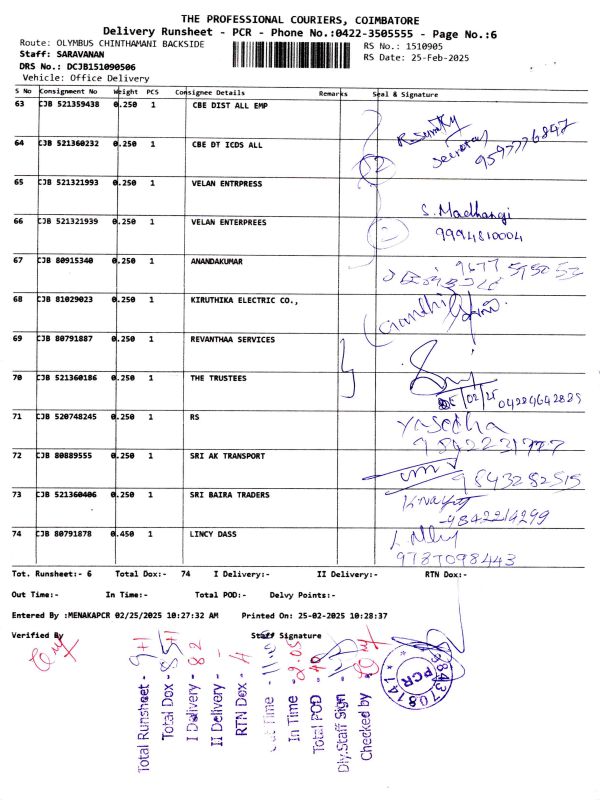 THE PROFESSIONAL COURIERS, COIMBATORE
Delivery Runsheet - PCR - Phone No.:0422-3505555 - Page No.:6
Route: OLYMBUS CHINTHAMANI BACKSIDE
RS No.: 1510905
Staff: SARAVANAN
RS Date: 25-Feb-2025
DRS No.: DCJB151090506
Vehicle: Office Delivery
S No Consignment No Weight PCS Consignee Details Remarks Seal & Signature
63 CJB 521359438 0.250 1 CBE DIST ALL EMP
64 CJB 521360232 0.250 1 CBE DT ICDS ALL
Secretary
9597776847
65 CJB 521321993 0.250 1 VELAN ENTRPRESS
66 CJB 521321939 0.250 1 VELAN ENTERPREES
S. Madhangi
9994810004
67 CJB 80915340 0.250 1 ANANDAKUMAR
68 CJB 81029023 0.250 1 KIRUTHIKA ELECTRIC CO.,
Gandhi
69 CJB 80791887 0.250 1 REVANTHAA SERVICES
70 CJB 521360186 0.250 1 THE TRUSTEES
04224642825
71 CJB 520748245 0.250 1 RS
Yasedha
9842231777
72 CJB 80889555 0.250 1 SRI AK TRANSPORT
9843282515
73 CJB 521360406 0.250 1 SRI BAIRA TRADERS
9842214299
74 CJB 80791878 0.450 1 LINCY DASS
9787098443
Tot. Runsheet:- 6 Total Dox:- 74 I Delivery:- II Delivery:- RTN Dox:-
Out Time:- In Time:- Total POD:- Delvy Points:-
Entered By :MENAKAPCR 02/25/2025 10:27:32 AM Printed On: 25-02-2025 10:28:37
Verified By Staff Signature
Total Runsheet - 9+1
Total Dox - 85+1
I Delivery - 82
II Delivery - -
RTN Dox - 4
Out Time -
In Time - 2.05
Total POD - 40
Dly.Staff Sign -
Checked by -
PCR
9843708141